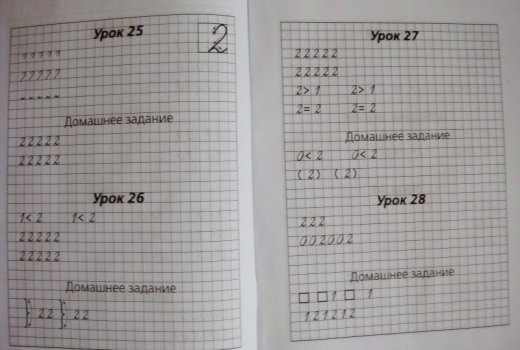 Урок 25
2
2 2 2 2 2
Домашнее задание
2 2 2 2 2
2 2 2 2 2
Урок 26
1< 2 1< 2
2 2 2 2 2
2 2 2 2 2
Домашнее задание
} 2 2 } 2 2
Урок 27
2 2 2 2 2
2 2 2 2 2
2> 1 2> 1
2= 2 2= 2
Домашнее задание
0< 2 0< 2
( 2) ( 2)
Урок 28
2 2 2
0 0 2 0 0 2
Домашнее задание
□ □ 1 □ 1
1 2 1 2 1 2